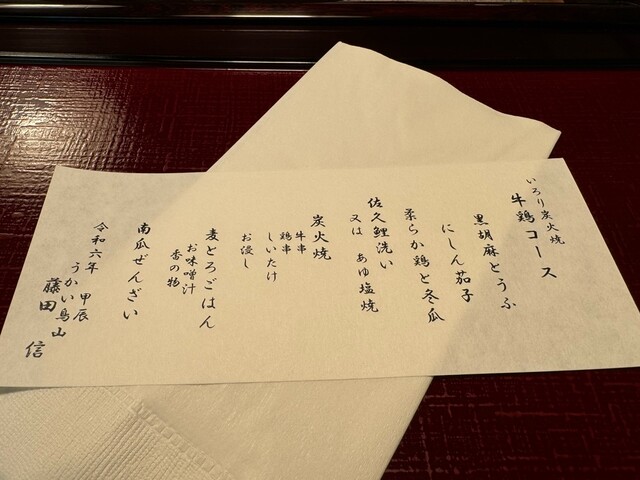 いろり炭火焼
牛鶏コース
黒胡麻とうふ
にしん茄子
柔らか鶏と冬瓜
佐久鯉洗い
又は あゆ塩焼
炭火焼
牛串
鶏串
しいたけ
お浸し
麦とろごはん
お味噌汁
香の物
南瓜ぜんざい
令和六年 甲辰
うかい鳥山
藤田 信